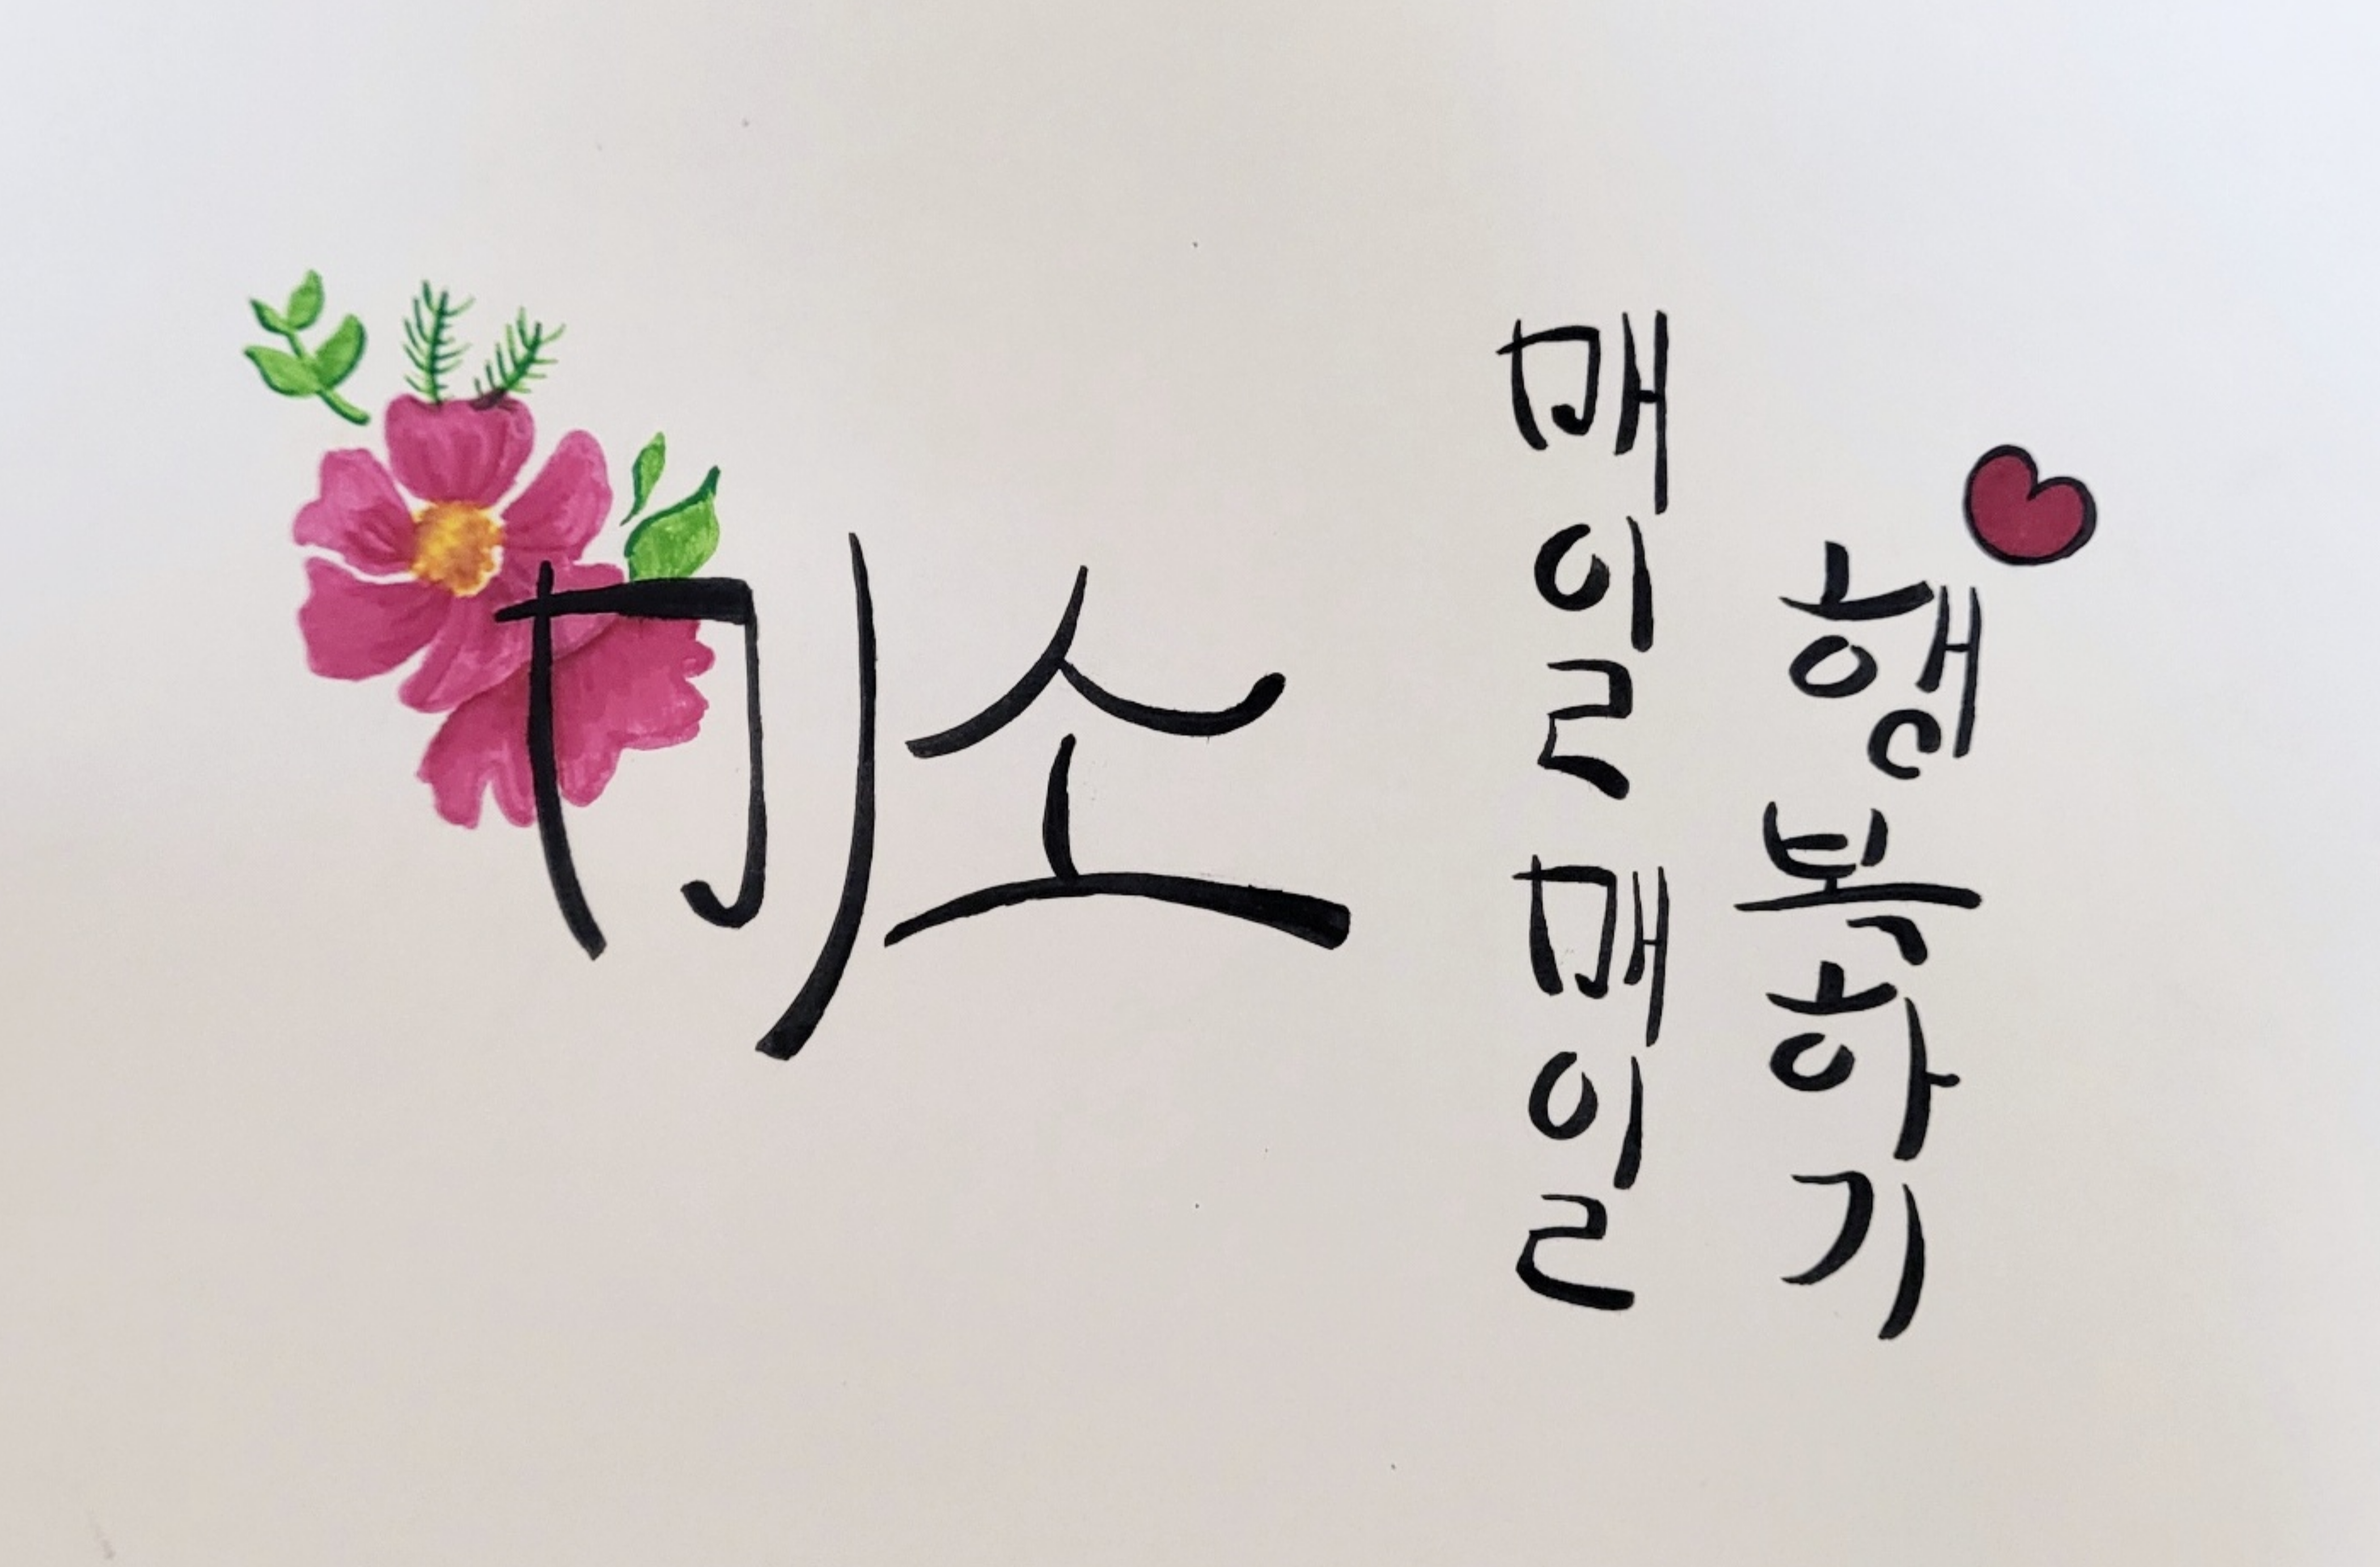 미소
매일매일
행복하기